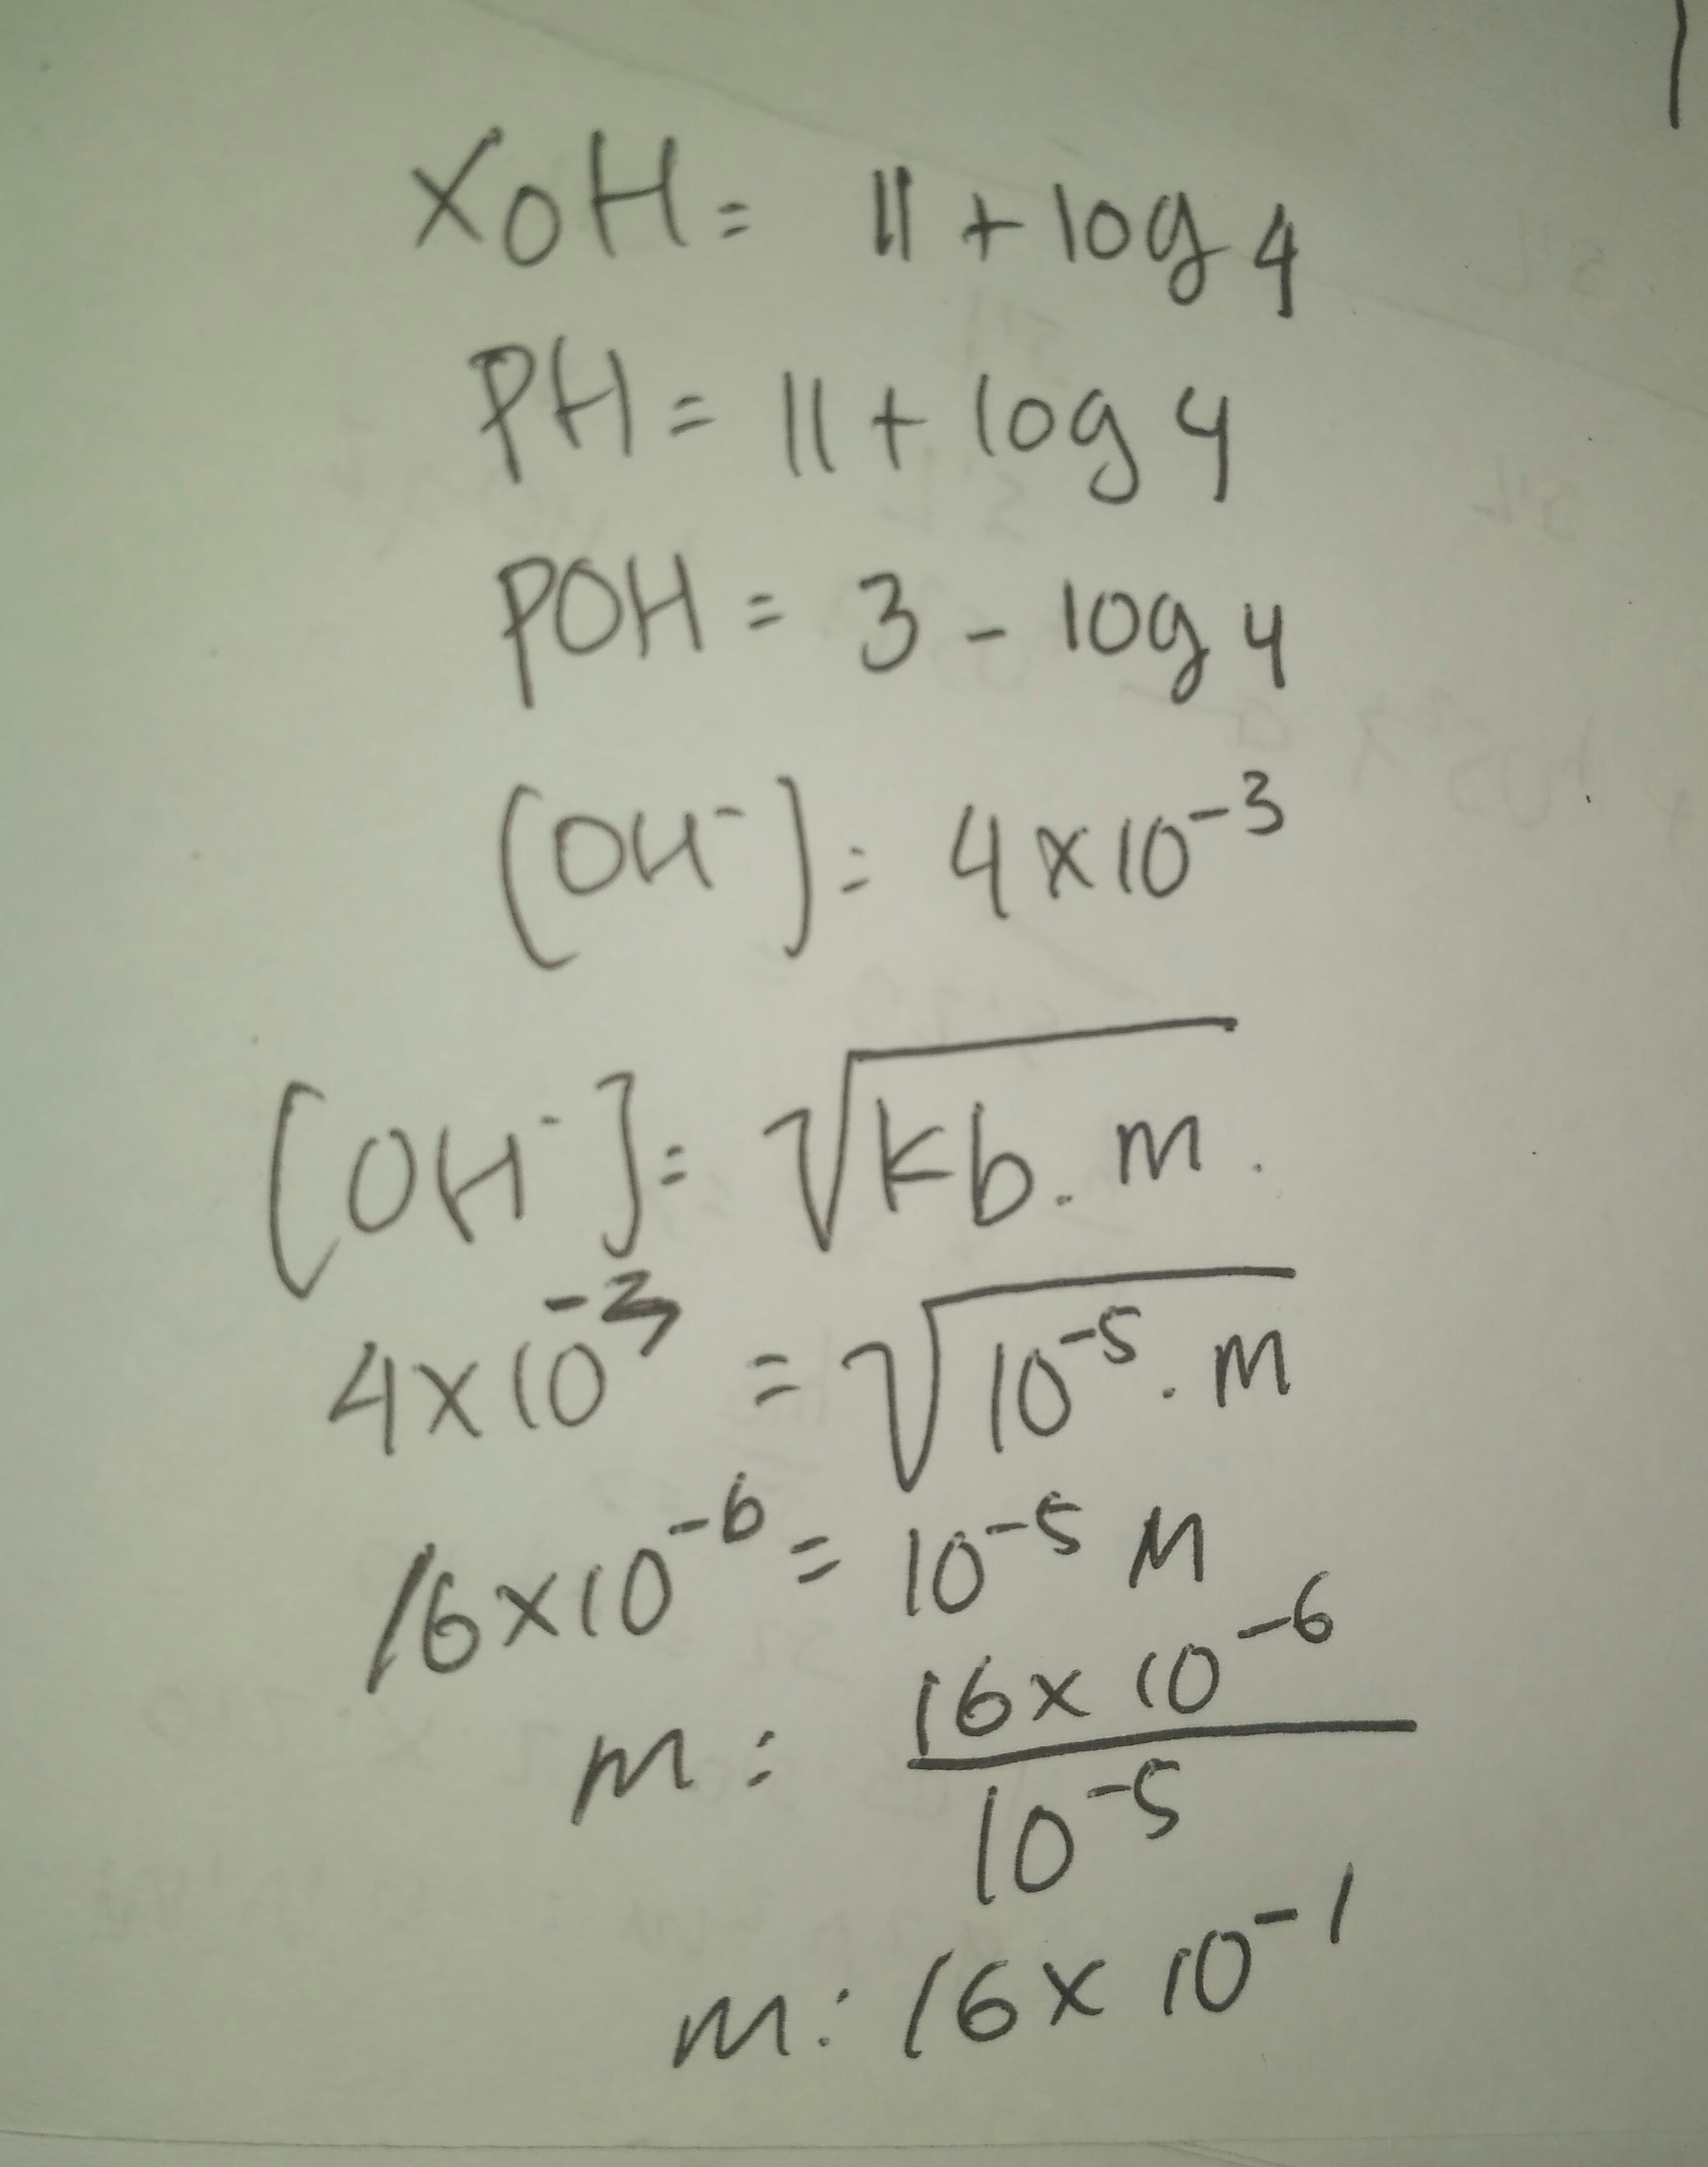 XOH = 11 + log 4
PH = 11 + log 4
POH = 3 - log 4
[OH⁻] = 4 x 10⁻³
[OH⁻] = √kb . m .
4 x 10⁻³ = √10⁻⁵ . M
16 x 10⁻⁶ = 10⁻⁵ M
m = 16 x 10⁻⁶ / 10⁻⁵
m : 16 x 10⁻¹